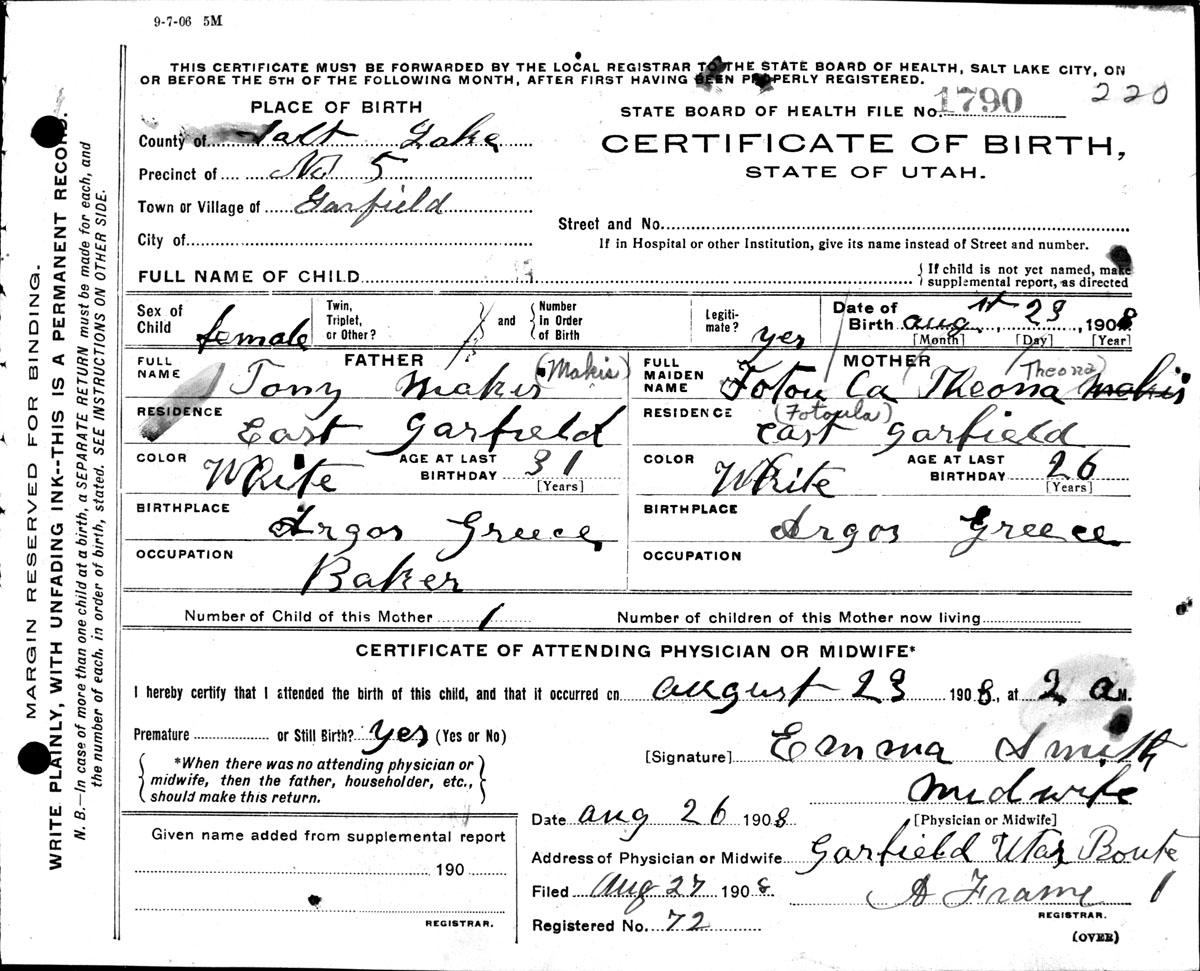 9-7-06 5M
THIS CERTIFICATE MUST BE FORWARDED BY THE LOCAL REGISTRAR TO THE STATE BOARD OF HEALTH, SALT LAKE CITY, ON
OR BEFORE THE 5TH OF THE FOLLOWING MONTH, AFTER FIRST HAVING BEEN PROPERLY REGISTERED.
PLACE OF BIRTH
STATE BOARD OF HEALTH FILE No. 1790 220
County of Salt Lake
CERTIFICATE OF BIRTH,
STATE OF UTAH.
Precinct of No 5
Town or Village of Garfield
Street and No.
City of
If in Hospital or other Institution, give its name instead of Street and number.
FULL NAME OF CHILD
{ If child is not yet named, make
supplemental report, as directed
Sex of Child female
Twin, Triplet, or Other?
and
Number in Order of Birth
Legiti-mate? yes
Date of Birth Aug st 23, 1908
[Month] [Day] [Year]
FATHER
FULL NAME Tony Maker (Makis)
RESIDENCE East Garfield
COLOR White
AGE AT LAST BIRTHDAY 31
[Years]
BIRTHPLACE Argos Greece
OCCUPATION Baker
MOTHER
FULL MAIDEN NAME Fotou Ca Theona Makis
(Theona)
(Fotoula)
RESIDENCE East Garfield
COLOR White
AGE AT LAST BIRTHDAY 26
[Years]
BIRTHPLACE Argos Greece
OCCUPATION
Number of Child of this Mother 1
Number of children of this Mother now living
CERTIFICATE OF ATTENDING PHYSICIAN OR MIDWIFE*
I hereby certify that I attended the birth of this child, and that it occurred on August 23 1908, at 2 a M.
Premature or Still Birth? Yes (Yes or No)
[Signature] Emma Smith
*When there was no attending physician or
midwife, then the father, householder, etc.,
should make this return.
Midwife
[Physician or Midwife]
Date Aug 26 1908
Given name added from supplemental report
190
REGISTRAR.
Address of Physician or Midwife Garfield Utah Route 1
Filed Aug 27 1908
A Frame
REGISTRAR.
Registered No. 72
(OVER)
MARGIN RESERVED FOR BINDING.
WRITE PLAINLY, WITH UNFADING INK--THIS IS A PERMANENT RECORD.
N. B.—In case of more than one child at a birth, a SEPARATE RETURN must be made for each, and
the number of each, in order of birth, stated. SEE INSTRUCTIONS ON OTHER SIDE.